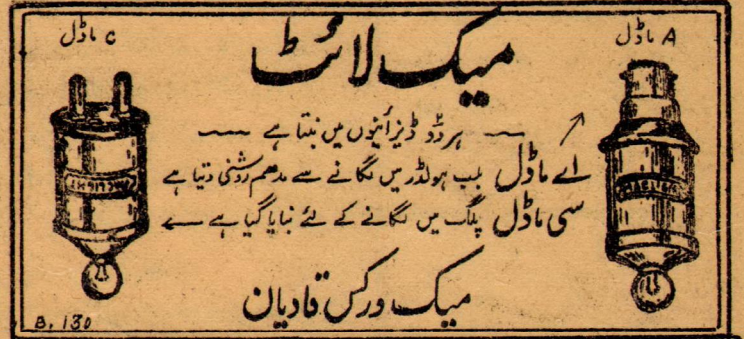 ماڈل C
ماڈل A
میک لائٹ
ہر دو ڈیزائنوں میں بنتا ہے
اے ماڈل بلب ہولڈر میں لگانے سے مدھم روشنی دیتا ہے
سی ماڈل پلگ میں لگانے کے لئے بنایا گیا ہے
MACLIGHT
میک ورکس قادیان
B. 130